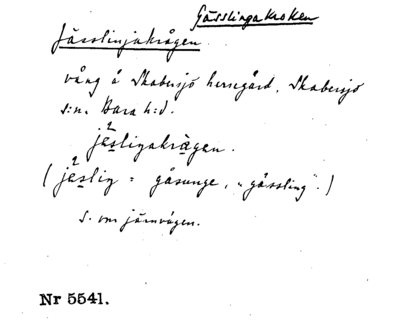 Gässlingakroken
Jässlinjakrågen.
vång å Skabersjö herregård, Skabersjö
s:n. Bara h:d.
jäsliŋakrågen.
(jäsliŋ = gåsunge, „gässling".)
S. om järnvägen.
Nr 5541.